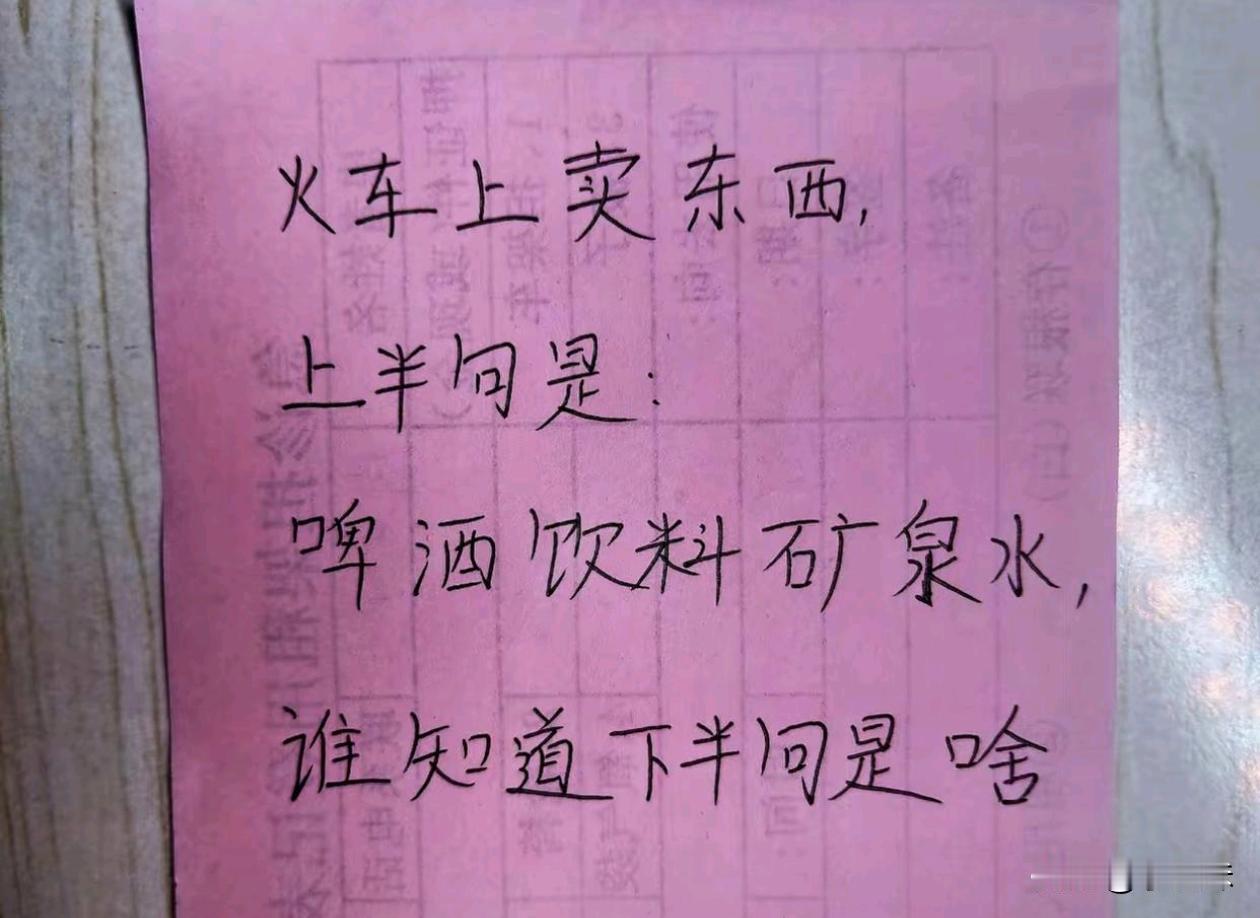 火车上卖东西,
上半句是:
啤酒饮料矿泉水,
谁知道下半句是啥